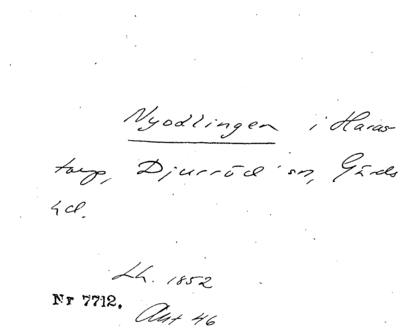 Nyodlingen i Haras-
torp, Djurröd sn, Gärds
hd.
Lh. 1852
Nr 7712.
Akt 46